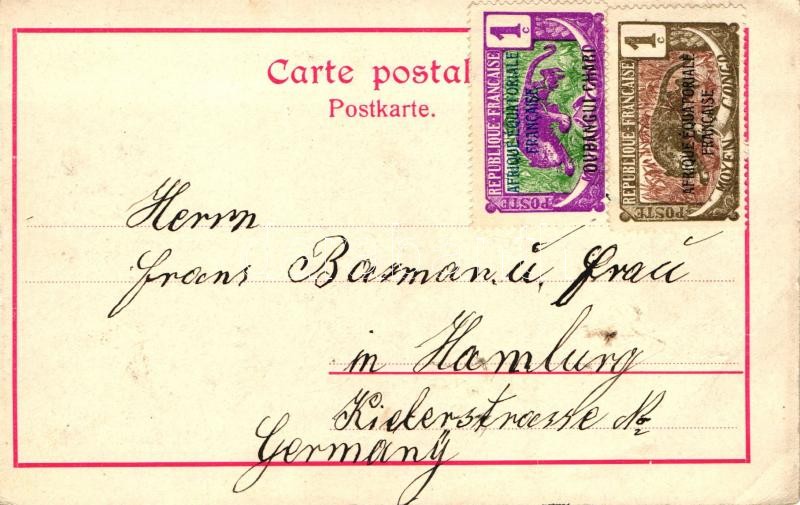 Carte postal
Postkarte.
1
c
REPUBLIQUE-FRANÇAISE
POSTE
AFRIQUE EQUATORIALE
FRANÇAISE
OUBANGUI-CHARI
1
c
REPUBLIQUE-FRANÇAISE
POSTE
AFRIQUE EQUATORIALE
FRANÇAISE
MOYEN CONGO
Herrn
Frans Basman. u. Frau
in Hamburg
Kielerstrasse No
Germany